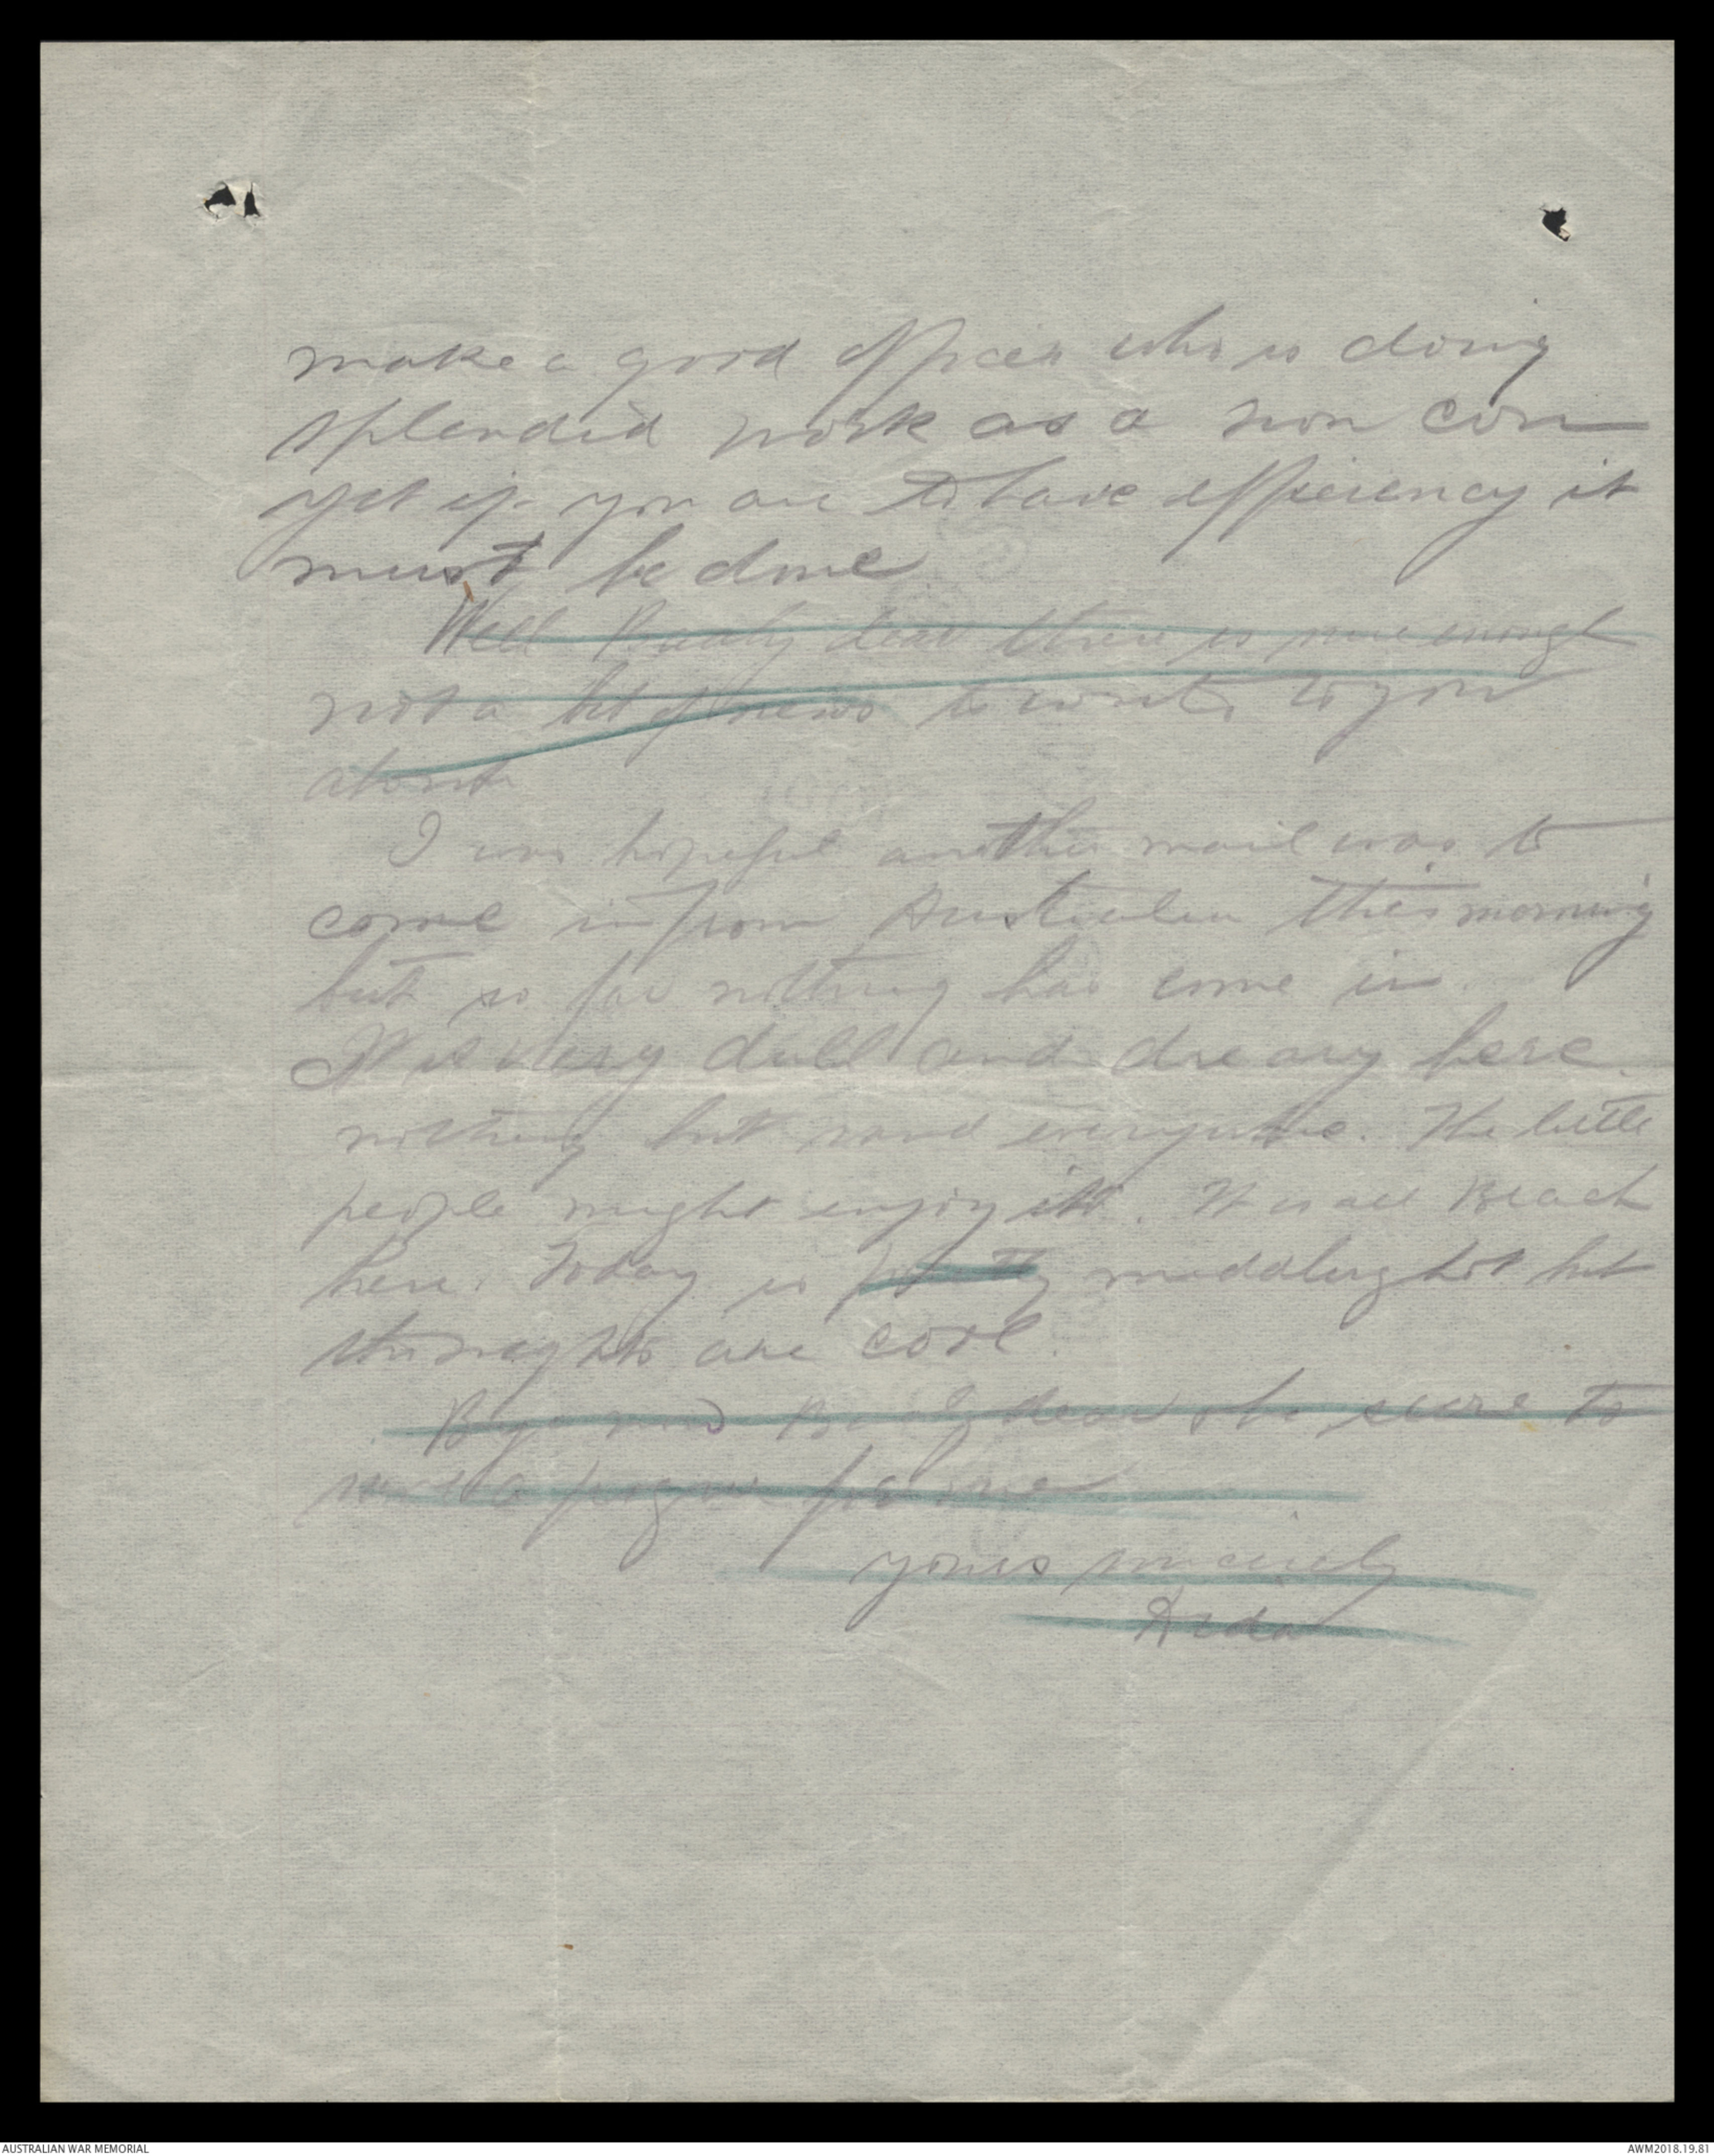 make a good officer who is doing
splendid work as a non com
yet if you are to have efficiency it
must be done
Well dear there is sure enough
not a bit of news to write to you
about
I was hopeful another mail was to
come in from Australia this morning
but so far nothing has come in.
It is very dull and dreary here.
nothing but sand everywhere. The little
people might enjoy it. It is all Beach
here. Today is pretty middling hot but
the nights are cool.
Bye now dear & be sure to
for me
yours sincerely
AUSTRALIAN WAR MEMORIAL
AWM2018.19.81